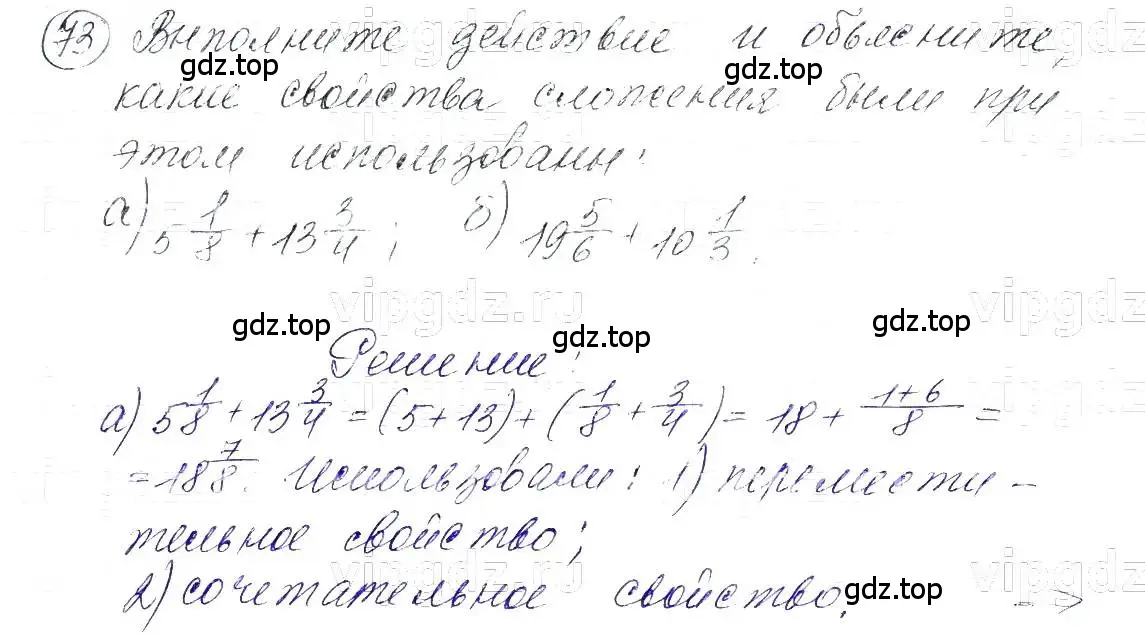 73 Выполните действие и объясните,
gdz.top gdz.top
какие свойства сложения были при
этом использованы:
а) 5 1/8 + 13 3/4 ; б) 19 5/6 + 10 1/3.
vipgdz.ru vipgdz
gdz.top gdz.top gdz.top
Решение:
а) 5 1/8 + 13 3/4 = (5+13) + (1/8 + 3/4) = 18 + (1+6)/8 =
= 18 7/8. Использовали: 1) перемести-
тельное свойство;
2) сочетательное свойство. =>
gdz.top